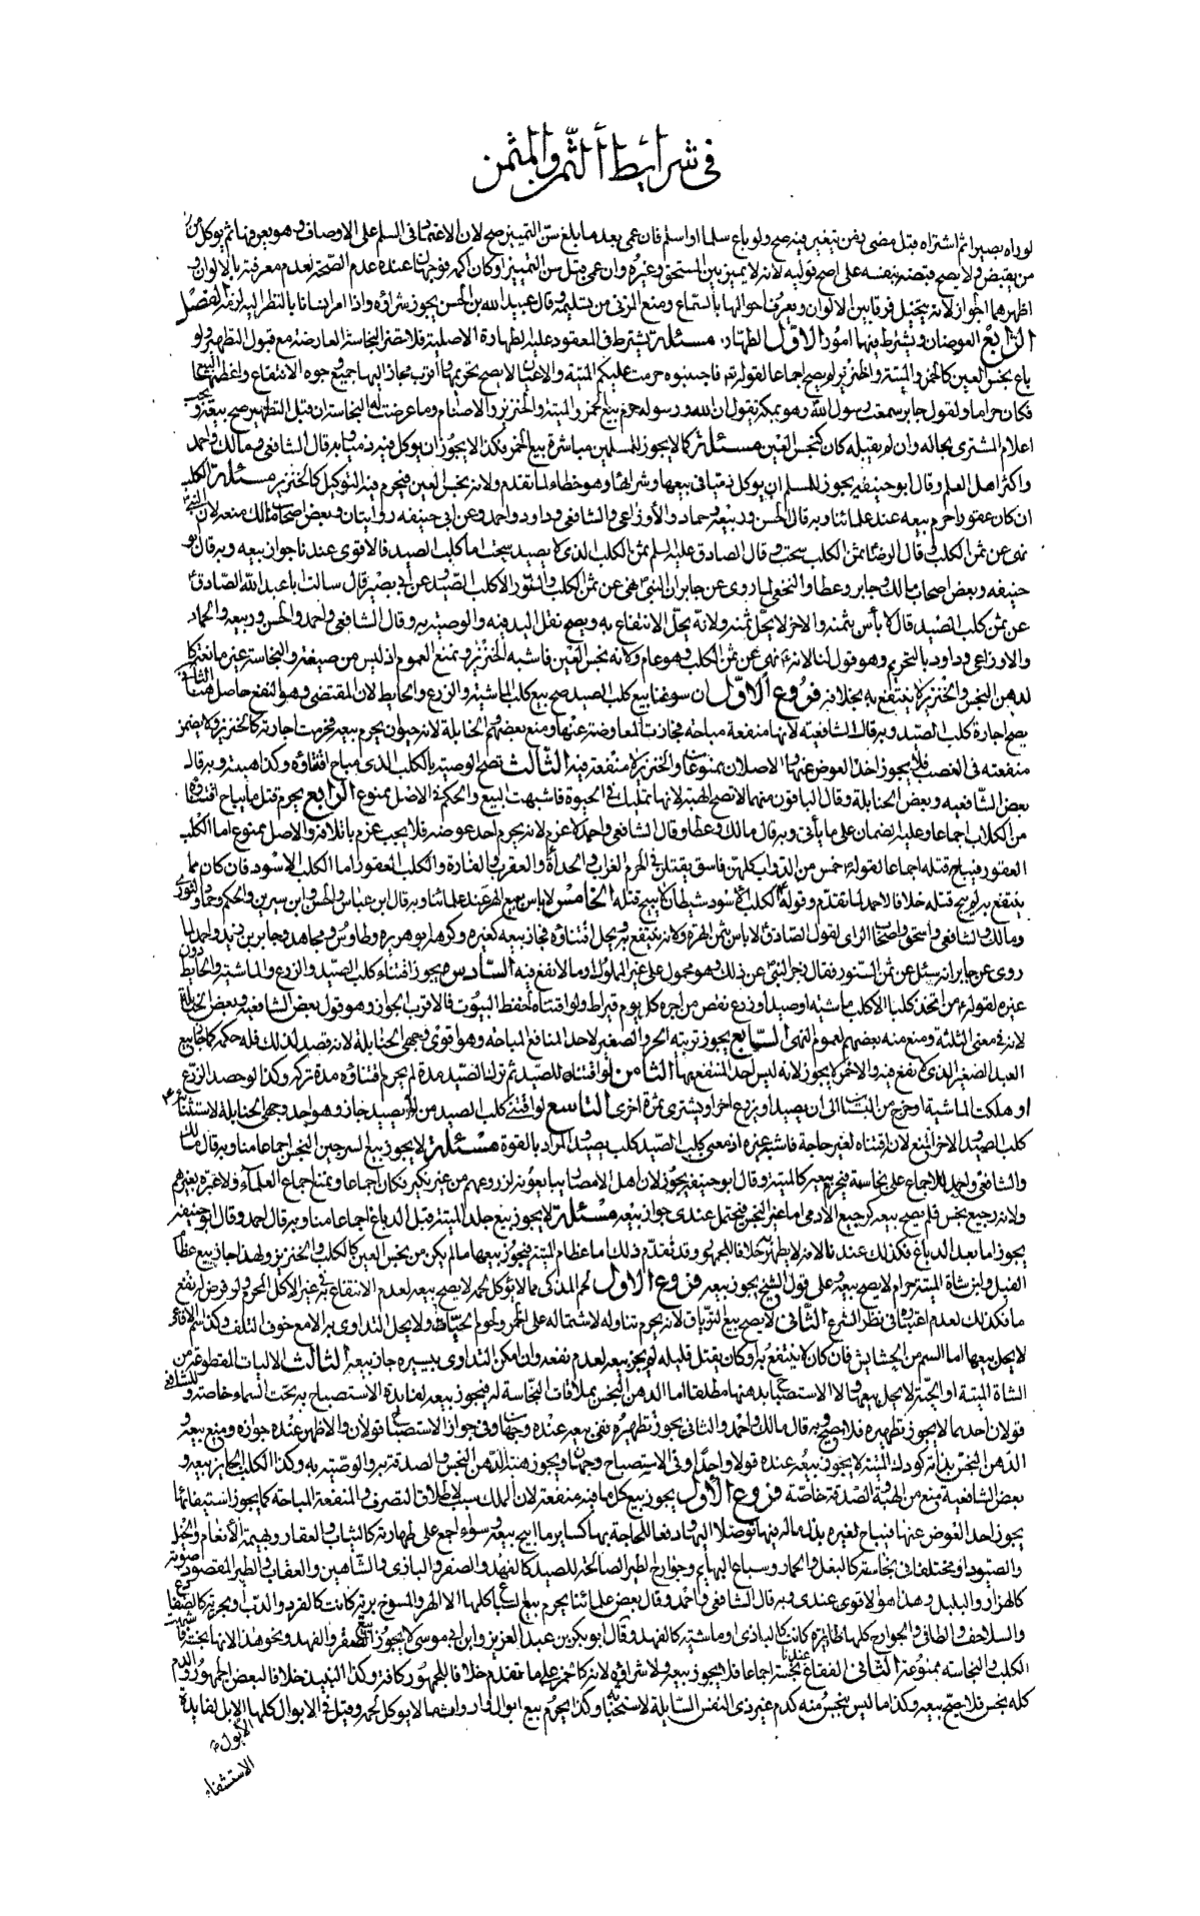 في شرايط الثمن والمثمن
لو راه بصيرا ثم اشتراه قبل مضى زمن يتغير فيه صح ولو باع سلما او اسلم فان عمى بعد ما بلغ سن التمييز صح لان الاعتماد في السلم على الاوصاف وهو يعرفها ثم يوكل من
من يقبض ولا يصح قبضه بنفسه على اصح قوليه لانه لا يميز بين المستحق وغيره وان عمى قبل سن التمييز او كان اكمه فوجهان عنده عدم الصحة لعدم معرفته بالالوان و
اظهرهما الجواز لانه يتخيل فرقا بين الالوان ويعرف احوالها بالسماع ومنع المزنى من تسليمه وقال عبيد الله بن الحسن يجوز شراؤه واذا امر انسانا بالنظر اليه لزمه الفصل
الرابع العوضان ويشترط فيها امور الاول الطهارة مسئلة يشترط في المعقود عليه الطهارة الاصلية فلا تضر النجاسة العارضة مع قبول التطهير ولو
باع نجس العين كالخمر والميتة والخنزير لم يصح اجماعا لقوله تعالى فاجتنبوه حرمت عليكم الميتة والاعيان لا يصح تحريمها واقرب مجاز اليها جميع وجوه الانتفاع واعظمها البيع
فكان حراما ولقول جابر سمعت رسول الله وهو بمكة يقول ان الله ورسوله حرم بيع الخمر والميتة والخنزير والاصنام وما عرضت له النجاسة ان قبل التطهير صح بيعه ويجب
اعلام المشترى بحاله وان لم يقبله كان كنجس العين مسئلة كما لا يجوز للمسلمين مباشرة بيع الخمر فكذا لا يجوز ان يوكل فيه ذميا وبه قال الشافعى ومالك واحمد
واكثر اهل العلم وقال ابو حنيفة يجوز للمسلم ان يوكل ذميا في بيعها وشرائها وهو خطاء لما تقدم ولانه نجس العين فيحرم فيه التوكيل كالخنزير مسئلة الكلب
ان كان عقورا حرم بيعه عند علمائنا وبه قال الحسن وربيعه وحماد والاوزاعى والشافعى وداود واحمد وعن ابى حنيفه روايتان وبعض اصحاب مالك منعه لان النبى
نهى عن ثمن الكلب وقال الرضا ثمن الكلب سحت وقال الصادق عليه السلم ثمن الكلب الذى لا يصيد سحت اما كلب الصيد فالاقوى عندنا جواز بيعه وبه قال ابو
حنيفه وبعض اصحاب مالك وجابر وعطا والنخعى لما روى عن جابر ان النبى نهى عن ثمن الكلب والسنور الا كلب الصيد وعن ابى بصير قال سالت ابا عبد الله الصادق
عن ثمن كلب الصيد قال لا بأس بثمنه والاخر لا يحل ثمنه ولانه يحل الانتفاع به ويصح نقل اليد فيه والوصية به وقال الشافعى واحمد والحسن وربيعه وحماد
والاوزاعى وداود بالتحريم وهو قول لنا لانه نهى عن ثمن الكلب وهو عام ولانه نجس العين فاشبه الخنزير ونمنع العموم اذ ليس من صيغه والنجاسة غير مانعة كا
لدهن النجس والخنزير لا ينتفع به بخلافه فروع الاول ان سوغنا بيع كلب الصيد صح بيع كلب الماشية والزرع والحايط لان المقتضى وهو النفع حاصل هنا الثانى
يصح اجارة كلب الصيد وبه قال الشافعية لانها منفعة مباحة فجازت المعاوضة عنها ومنع بعضهم الحنابلة لانه حيوان يحرم بيعه فحرمت اجارته كالخنزير ولا يضمن
منفعته في الغصب فلا يجوز اخذ العوض عنها والاصلان ممنوعان والخنزير لا منفعة فيه الثالث تصح الوصية بالكلب الذى يباح اقتناؤه وكذا هبته وبه قال
بعض الشافعيه وبعض الحنابلة وقال الباقون منهما لا تصح الهبة لانها تمليك في الحيوة فاشبهت البيع والحكم في الاصل ممنوع الرابع يحرم قتل ما يباح اقتناؤه
من الكلاب اجماعا وعليه الضمان على ما يأتى وبه قال مالك وعطا وقال الشافعى واحمد لا غرم لانه يحرم اخذ عوضه فلا يجب غرم باتلافه والاصل ممنوع اما الكلب
العقور فيباح قتله اجماعا لقوله خمس من الدواب كلهن فاسق يقتلن في الحرم الغراب والحدأة والعقرب والفارة والكلب العقور اما الكلب الاسود فان كان مما
ينتفع به لم يبح قتله خلافا لاحمد لما تقدم وقوله الكلب الاسود شيطان لا يبيح قتله الخامس لا باس ببيع الهر عند علمائنا وبه قال ابن عباس والحسن وابن سيرين والحكم وحماد والثورى
ومالك والشافعى واسحق واصحاب الراى لقول الصادق لا باس بثمن الهرة ولانه ينتفع به ويحل اقتناؤه فجاز بيعه كغيره وكرهه ابو هريره وطاوس ومجاهد وجابر بن زيد واحمد لما
روى عن جابر انه سئل عن ثمن السنور فقال زجر النبى عن ذلك وهو محمول على غير المملوك وما لا نفع فيه السادس يجوز اقتناء كلب الصيد والزرع والماشية والحايط دون
غيره لقوله من اتخذ كلبا الا كلب ماشية او صيد او زرع نقص من اجره كل يوم قيراط ولو اقتناه لحفظ البيوت فالاقرب الجواز وهو قول بعض الشافعية وبعض الحنابلة
لانه في معنى الثلثة ومنع منه بعضهم لعموم النهى السابع يجوز تربيته الجرو الصغير لاحد المنافع المباحة وهو اقوى وجهى الحنابلة لانه قصد لذلك فله حكمه كما جاز بيع
العبد الصغير الذى لا نفع فيه والاخر لا يجوز لانه ليس احد المنتفع بها الثامن لو اقتناه للصيد ثم ترك الصيد مدة لم يحرم اقتناؤه مدة تركه وكذا لو حصد الزرع
او هلكت الماشية او خرج من البستان الى ان يصيد او يزرع اخر او يشترى ثمرة اخرى التاسع لو اقتنى كلب الصيد من لا يصيد جاز وهو احد وجهى الحنابلة لاستثنائه
كلب الصيد والاخر المنع لانه اقتناه لغير حاجة فاشبه غيره اذ معنى كلب الصيد كلب يصيد والمراد بالقوة مسئلة لا يجوز بيع السرجين النجس اجماعا منا وبه قال مالك
والشافعى واحمد للاجماع على نجاسته فيحرم بيعه كالميتة وقال ابو حنيفه يجوز لان اهل الامصار يبايعونه لزروعهم من غير نكير فكان اجماعا ونمنع اجماع العلماء ولا عبرة بغيرهم
ولانه رجيع نجس فلم يصح بيعه كرجيع الآدمى اما غير النجس فيحتمل عندى جواز بيعه مسئلة لا يجوز بيع جلد الميتة قبل الدباغ اجماعا منا وبه قال احمد وقال ابو حنيفه
يجوز اما بعد الدباغ فكذلك عندنا لانه لا يطهر به خلافا للجمهور وقد تقدم ذلك اما عظام الميتة فيجوز بيعها ما لم يكن من نجس العين كالكلب والخنزير ولهذا جاز بيع عظام
الفيل ولبن شاة الميتة حرام لا يصح بيعه وعلى قول الشيخ يجوز بيعه فروع الاول لحم المذكى مما لا يؤكل لحمه لا يصح بيعه لعدم الانتفاع به في غير الاكل المحرم ولو فرض له نفع
ما فكذلك لعدم اعتباره في نظر الشرع الثانى لا يصح بيع الترياق لانه يحرم تناوله لاشتماله على الخمر ولحوم الحيات ولا يحل التداوى به الا مع خوف التلف وكذا سم الافاعى
لا يحل بيعها اما السم من الحشايش فان كان لا ينتفع به او كان يقتل قليله لم يجز بيعه لعدم نفعه وان امكن التداوى بيسيره جاز بيعه الثالث الاليات المقطوعة من
الشاة الميتة او الحية لا يحل بيعها ولا الاستصباح بدهنها مطلقا اما الدهن النجس بملاقات النجاسة له فيجوز بيعه لفايدة الاستصباح به تحت السماء خاصة وللشافعى
قولان احدهما لا يجوز تطهيره فلا يصح وبه قال مالك واحمد والثانى يجوز تطهيره ففى بيعه عنده وجهان وفي جواز الاستصباح قولان والاظهر عنده جوازه ومنع بيعه و
الدهن النجس بذاته كودك الميتة لا يجوز بيعه عنده قولا واحدا وفي الاستصباح وجهان ويجوز هبة الدهن النجس والصدقة به والوصيته به وكذا الكلب الجايز بيعه و
بعض الشافعية منع من الهبة والصدقة خاصة فروع الاول يجوز بيع كل ما فيه منفعة لان الملك سبب لاطلاق التصرف والمنفعة المباحة كما يجوز استيفائها
يجوز اخذ العوض عنها فيباح لغيره بذل ماله فيها توصلا اليها ودفعا للحاجة بها كساير ما ابيح بيعه وسواء اجمع على طهارته كالثياب والعقار وبهيمة الأنعام والخيل
والصيود او مختلفا في نجاسته كالبغل والحمار وسباع البهايم وجوارح الطير الصالحة للصيد كالفهد والصقر والبازى والشاهين والعقاب والطير المقصود صوته
كالهزار والبلبل وهذا هو الاقوى عندى وبه قال الشافعى واحمد وقال بعض علمائنا يحرم بيع السباع كلها الا الهر والمسوخ برية كانت كالقرد والدب او بحرية كالضفادع
والسلاحف والطافى والجوارح كلها طايرة كانت كالبازى او ماشية كالفهد وقال ابو بكر بن عبد العزيز وابن ابى موسى لا يجوز بيع الصقر والفهد ونحوهما لانها نجسة فاشبهت
الكلب والنجاسه ممنوعة الثانى الفقاع عندنا نجسة اجماعا فلا يجوز بيعه ولا شراؤه لانه كالخمر على ما تقدم خلافا للجمهور كافة وكذا النبيذ خلافا لبعض الجمهور والدم
كله نجس فلا يصح بيعه وكذا ما ليس بنجس منه كدم غير ذى النفس السايلة لاستخباثه وكذا يحرم بيع ابوال وارواث ما لا يوكل لحمه وقيل في الابوال كلها الا بول الابل لفايدة
الاستشفاء